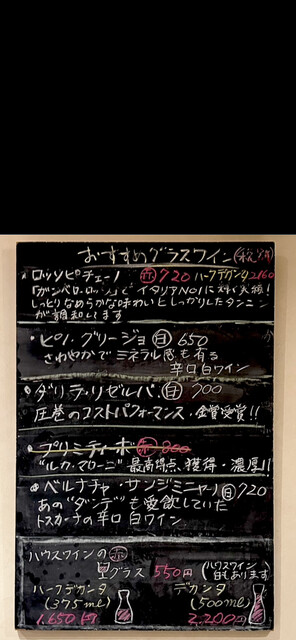 おすすめグラスワイン(税別)
・ロッソピチェーノ ㊤赤 720 ハーフデカンタ2160
「ガンベロ・ロッソ」で イタリアNO1に
しっとりなめらかな味わいとしっかりしたタンニン
が調和してます
・ピノ・グリージョ 白 650
さわやかで ミネラル感も有る
辛口白ワイン
・ダリ・ラ・リゼルバ 白 700
圧巻のコストパフォーマンス・金賞受賞!!
・プリミティーボ 赤 800
"ルカ・マローニ" 最高得点、獲得・濃厚!!
・ベルナチャ・サンジミニャーノ 白 720
あの"ダンテ"も愛飲していた
トスカーナの辛口 白ワイン
ハウスワインの 赤
グラス 550円 (ハウスワイン
白もあります)
ハーフデカンタ デカンタ
(375ml) (500ml)
1.650円 2,200円